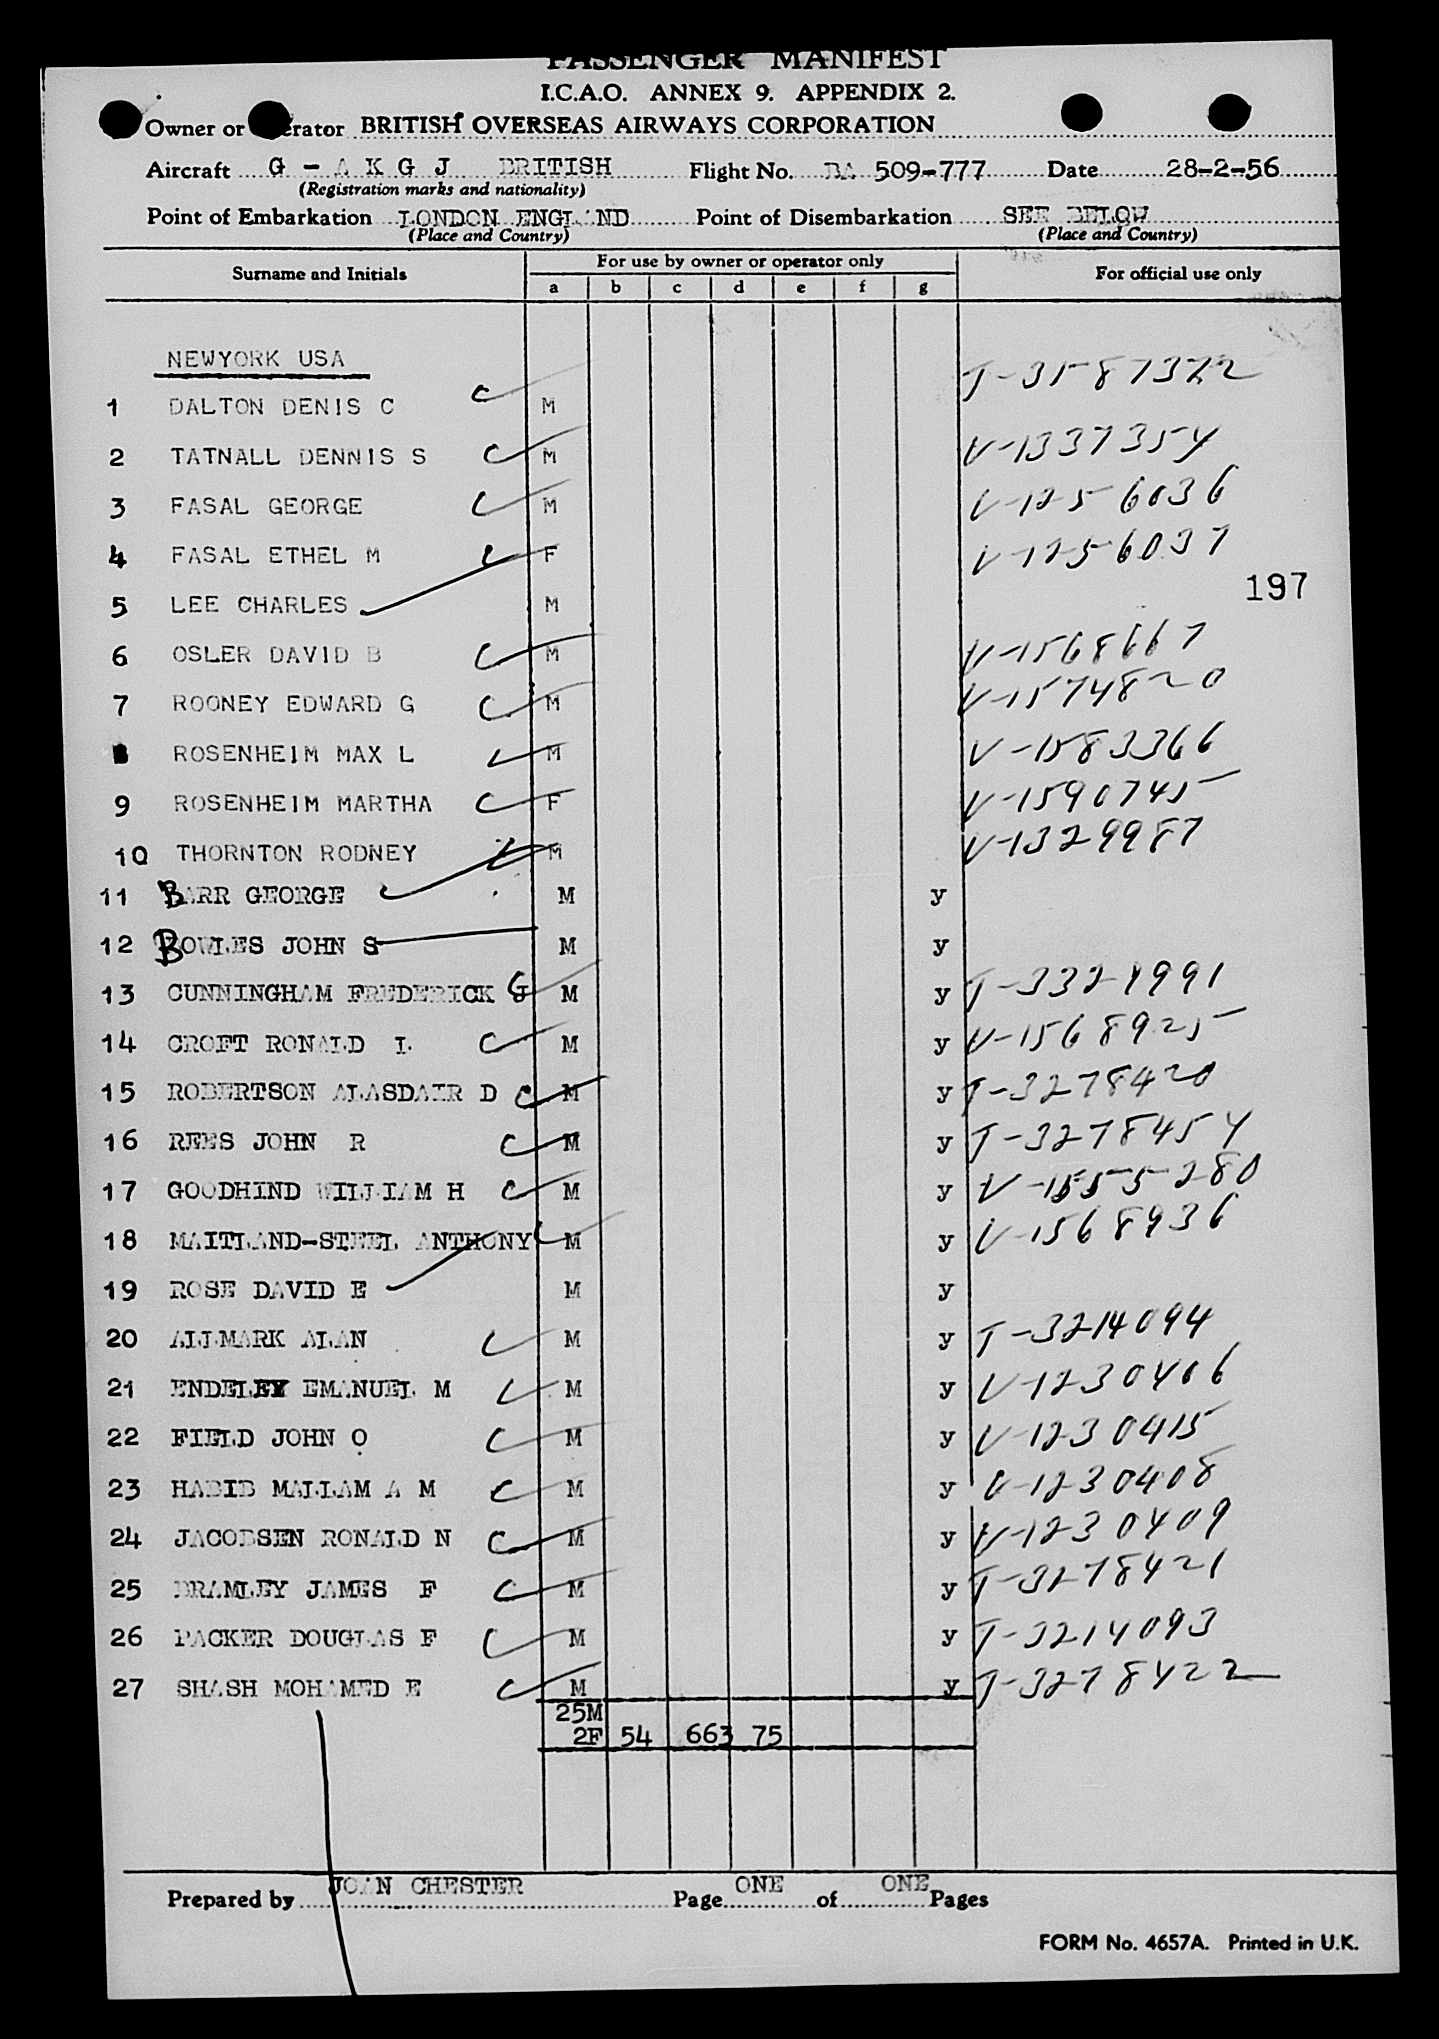 PASSENGER MANIFEST
I.C.A.O. ANNEX 9. APPENDIX 2.
Owner or Operator BRITISH OVERSEAS AIRWAYS CORPORATION
Aircraft G - A K G J BRITISH Flight No. BA 509-777 Date 28-2-56
(Registration marks and nationality)
Point of Embarkation LONDON ENGLAND Point of Disembarkation SEE BELOW
(Place and Country) (Place and Country)
Surname and Initials For use by owner or operator only For official use only
a b c d e f g
NEWYORK USA
1 DALTON DENIS C C M T-3187322
2 TATNALL DENNIS S C M V-1337354
3 FASAL GEORGE C M V-1256036
4 FASAL ETHEL M C F V-1256037
197
5 LEE CHARLES M
6 OSLER DAVID B C M V-1568667
7 ROONEY EDWARD G C M V-1574820
8 ROSENHEIM MAX L C M V-1583366
9 ROSENHEIM MARTHA C F V-1590745
10 THORNTON RODNEY C M V-1329987
11 BARR GEORGE M y
12 BOWLES JOHN S M y
13 CUNNINGHAM FREDERICK G M y T-3321991
14 CROFT RONALD L C M y V-1568925
15 ROBERTSON ALASDAIR D C M y T-3278420
16 REES JOHN R C M y T-3278454
17 GOODHIND WILLIAM H C M y V-1555280
18 MAITLAND-STEEL ANTHONY C M y V-1568936
19 ROSE DAVID E M y
20 ALLMARK ALAN C M y T-3214094
21 ENDELEY EMANUEL M C M y V-1230406
22 FIELD JOHN O C M y V-1230415
23 HABIB MALLAM A M C M y V-1230408
24 JACOBSEN RONALD N C M y V-1230409
25 BRAMLEY JAMES F C M y T-3278421
26 PACKER DOUGLAS F C M y T-3214093
27 SHASH MOHAMED E C M y T-3278422
25M
2F 54 663 75
Prepared by JOAN CHESTER Page ONE of ONE Pages
FORM No. 4657A. Printed in U.K.